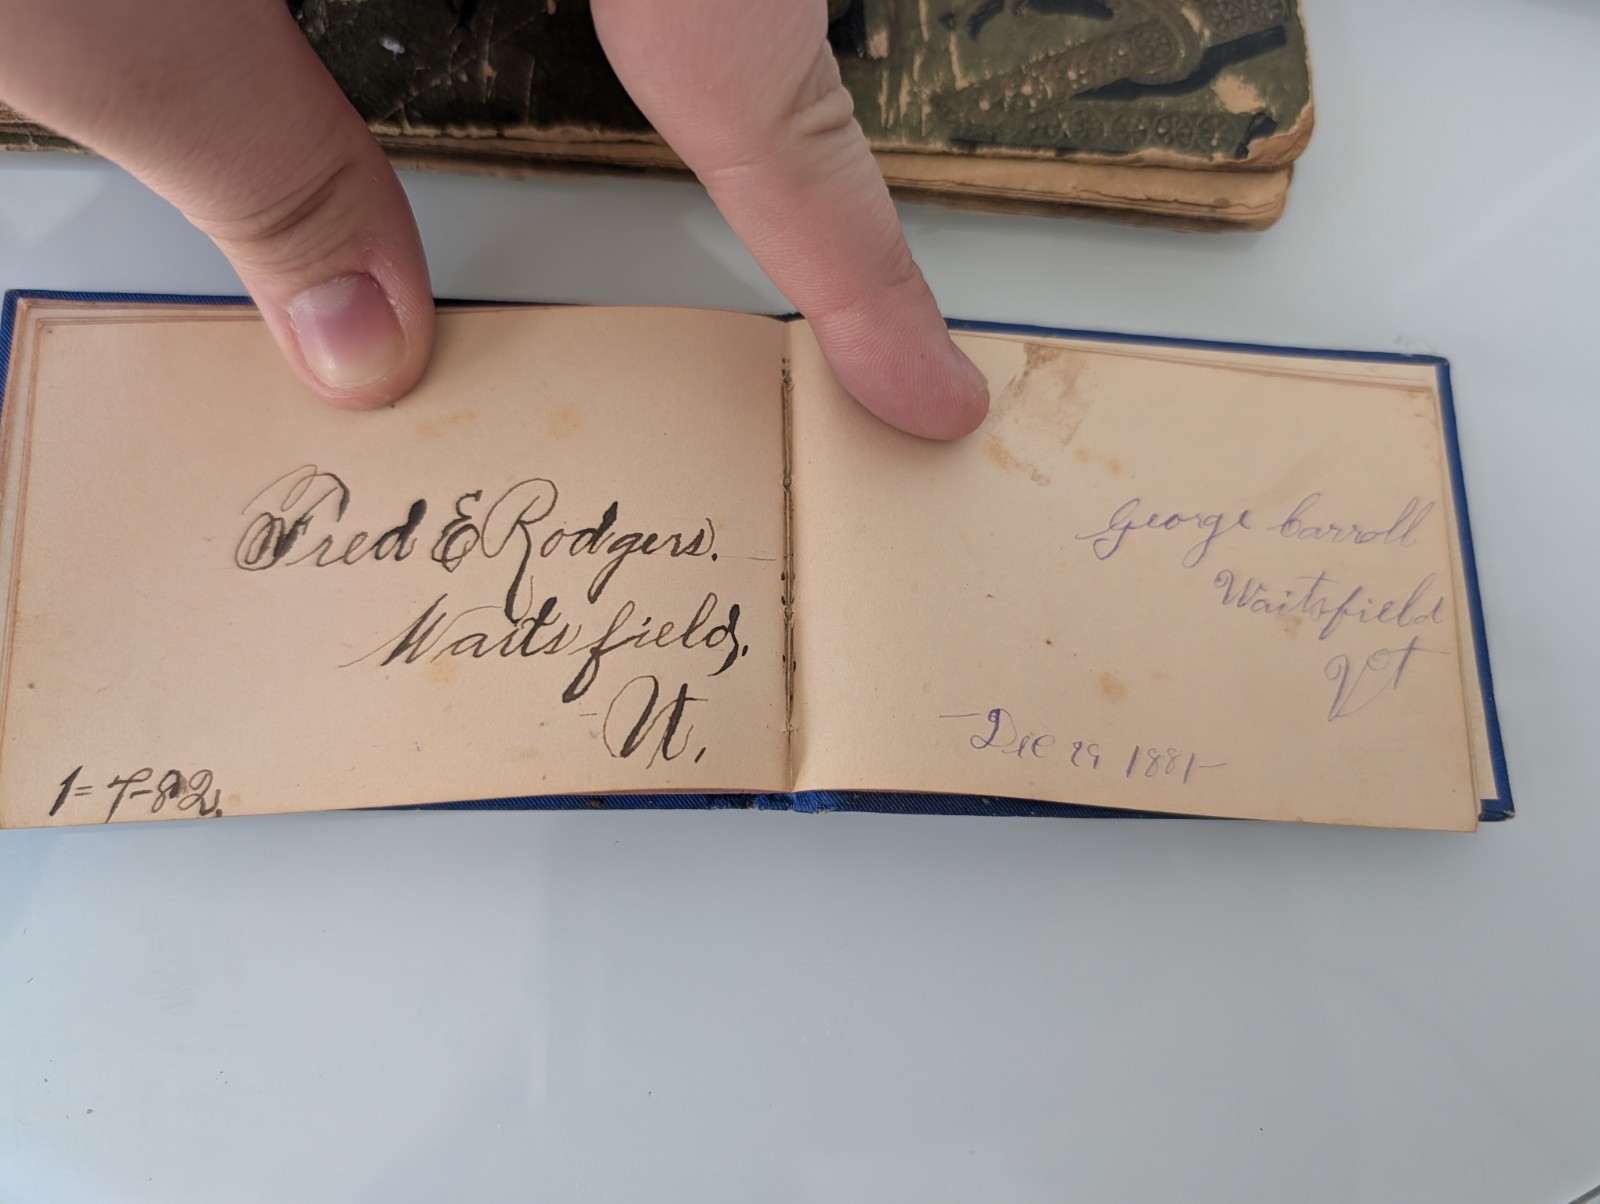 Fred E Rodgers.
Waitsfield,
Vt.
1=7-82.
George Carroll
Waitsfield
Vt
-Dec 29 1881-